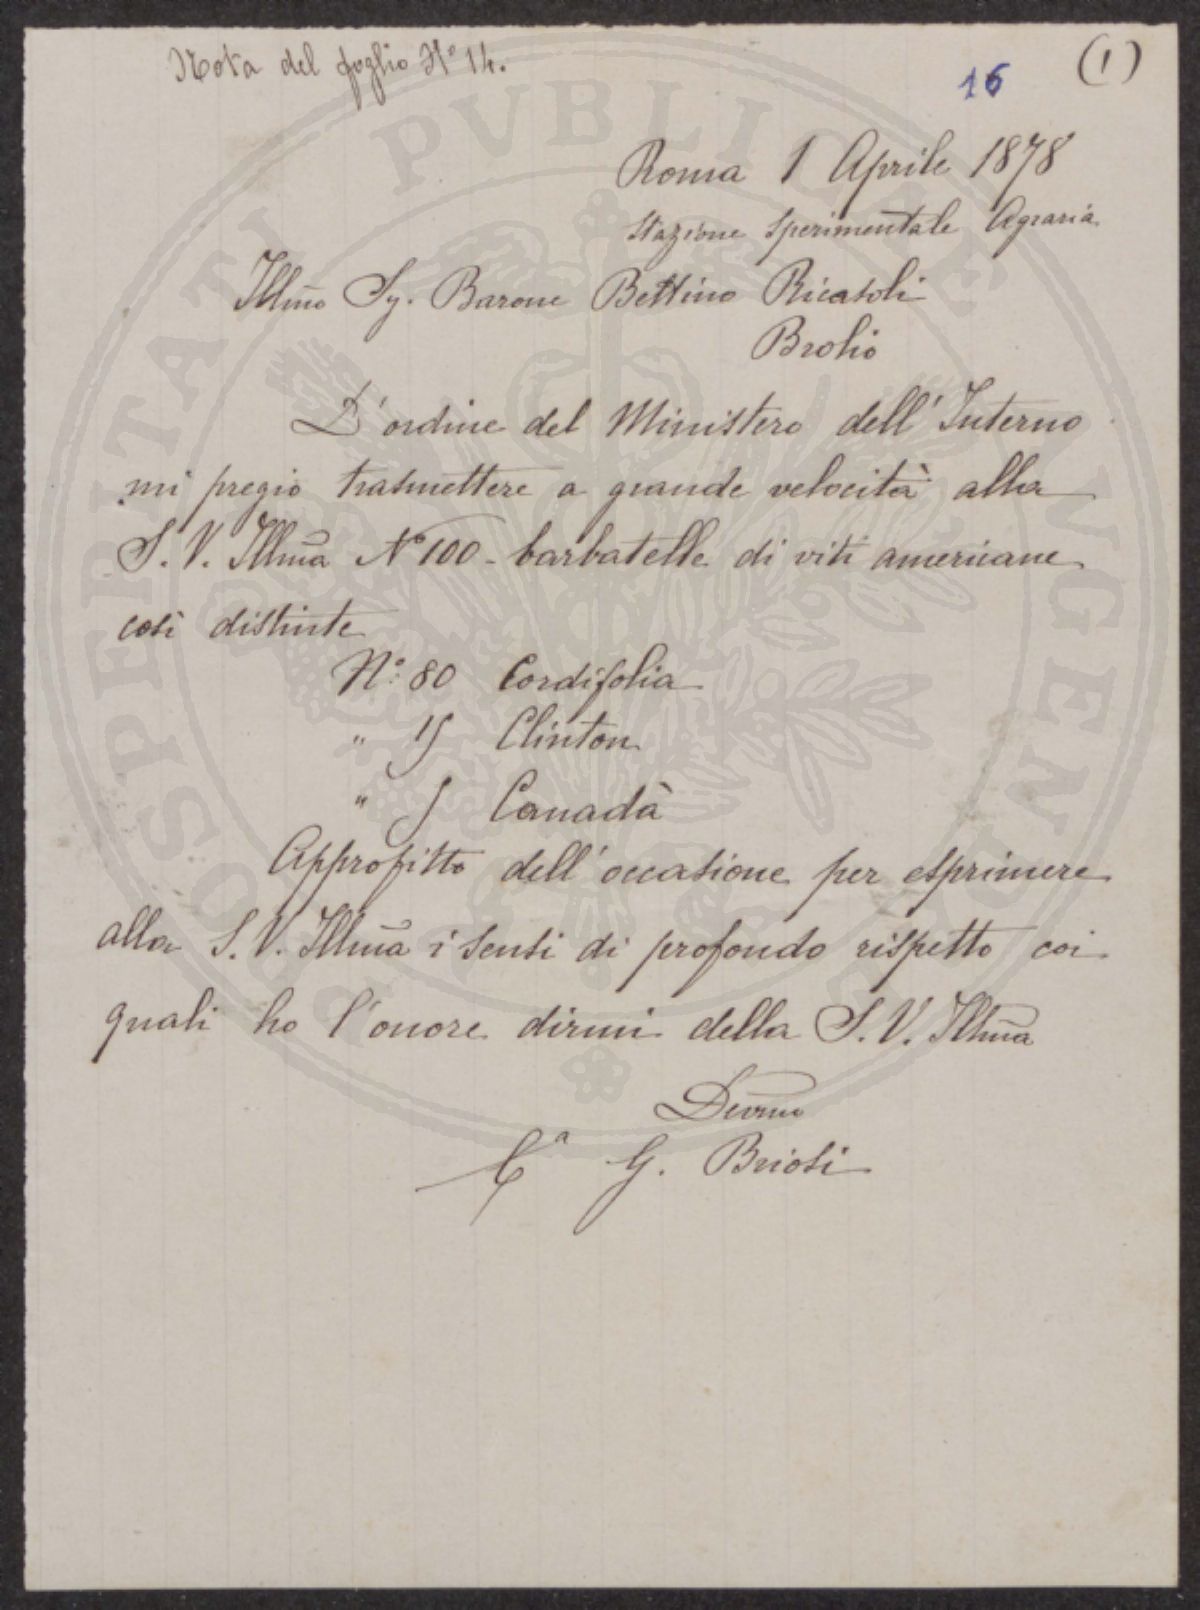 Nota del foglio N° 14.
16
(1)
Roma 1 Aprile 1878
Stazione Sperimentale Agraria
Illmo Sg. Barone Bettino Ricasoli
Brolio
D'ordine del Ministero dell'Interno
mi pregio trasmettere a grande velocità alla
S. V. Illma N° 100 - barbatelle di viti americane
così distinte
N.° 80 Cordifolia
" 15 Clinton
" 5 Canadà
Approfitto dell'occasione per esprimere
alla S. V. Illma i sensi di profondo rispetto coi
quali ho l'onore dirmi della S. V. Illma
Devmo
G. Briosi
PROSPERITATI PUBLICAE AUGENDAE